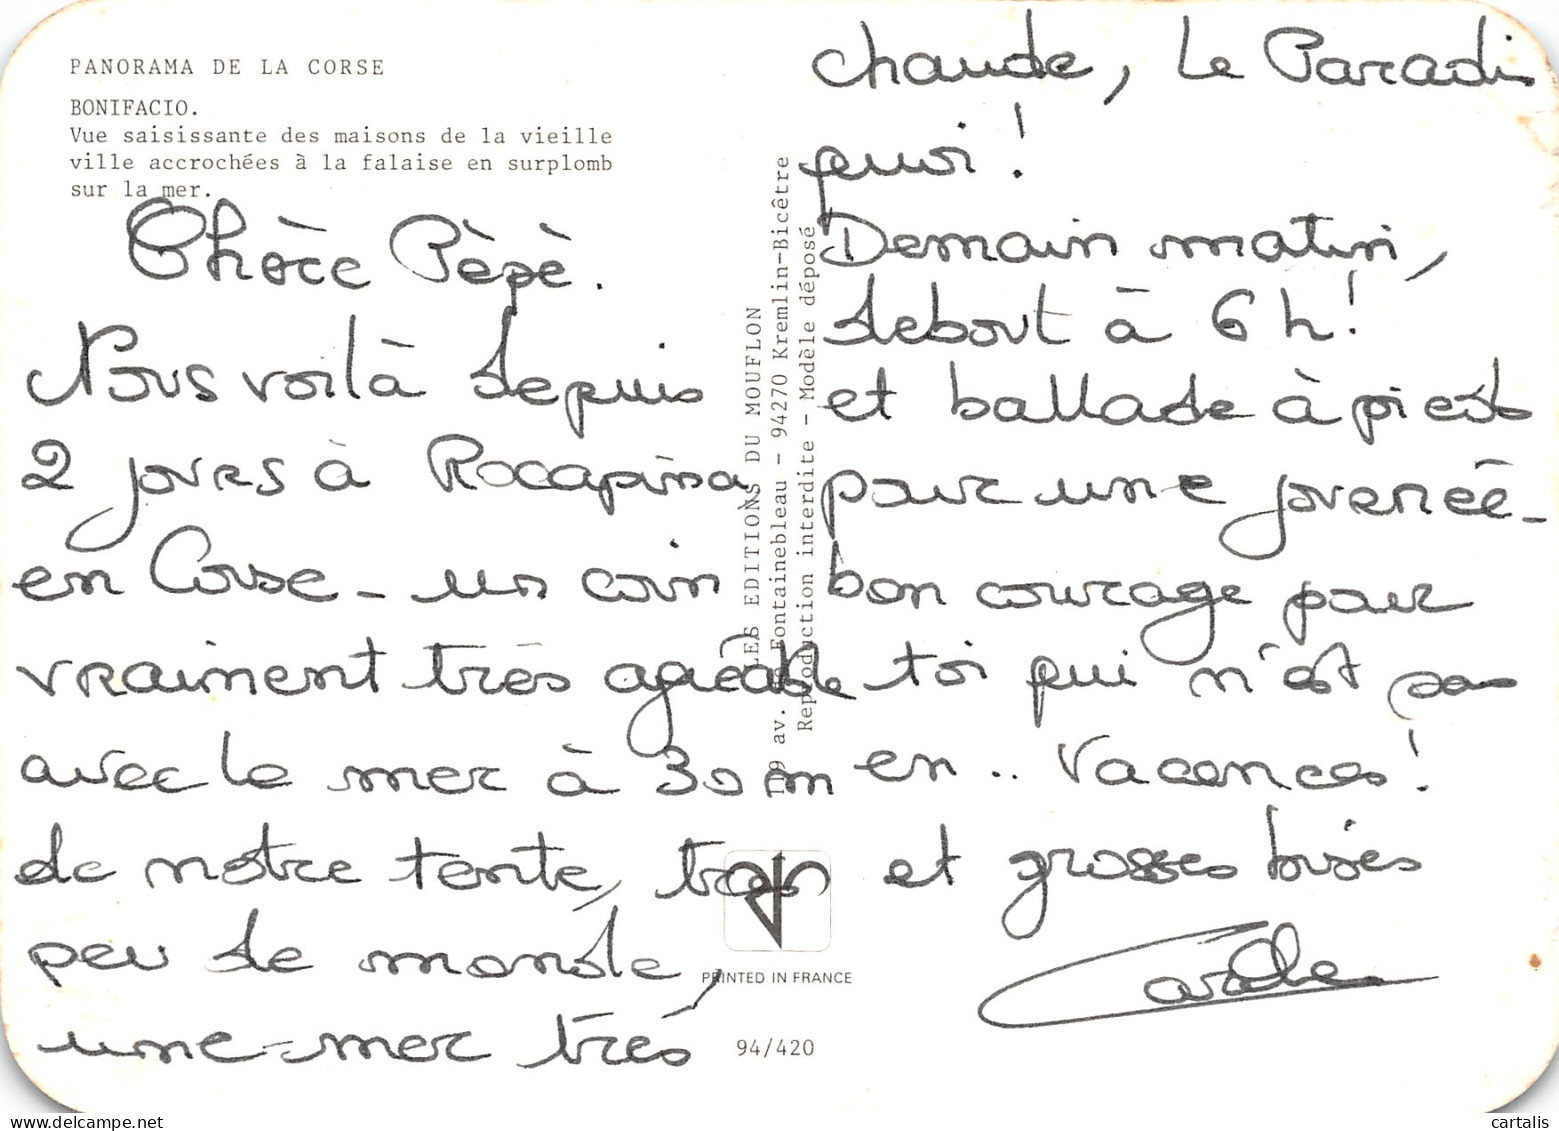 PANORAMA DE LA CORSE
BONIFACIO.
Vue saisissante des maisons de la vieille
ville accrochées à la falaise en surplomb
sur la mer.
Chère Pèpè.
Nous voilà depuis
2 jours à Rocapina,
en Corse - un coin
vraiment très agréable
avec la mer à 30 m
de nôtre tente, très
peu de monde,
une mer très
LES EDITIONS DU MOUFLON
av. de Fontainebleau - 94270 Kremlin-Bicêtre
Reproduction interdite - Modèle déposé
PRINTED IN FRANCE
94/420
chaude, Le Paradis
quoi !
Demain matin,
debout à 6 h !
et ballade à pieds
pour une journée -
bon courage pour
toi qui n'est pas
en .. Vacances !
et grosses bises
cartalis